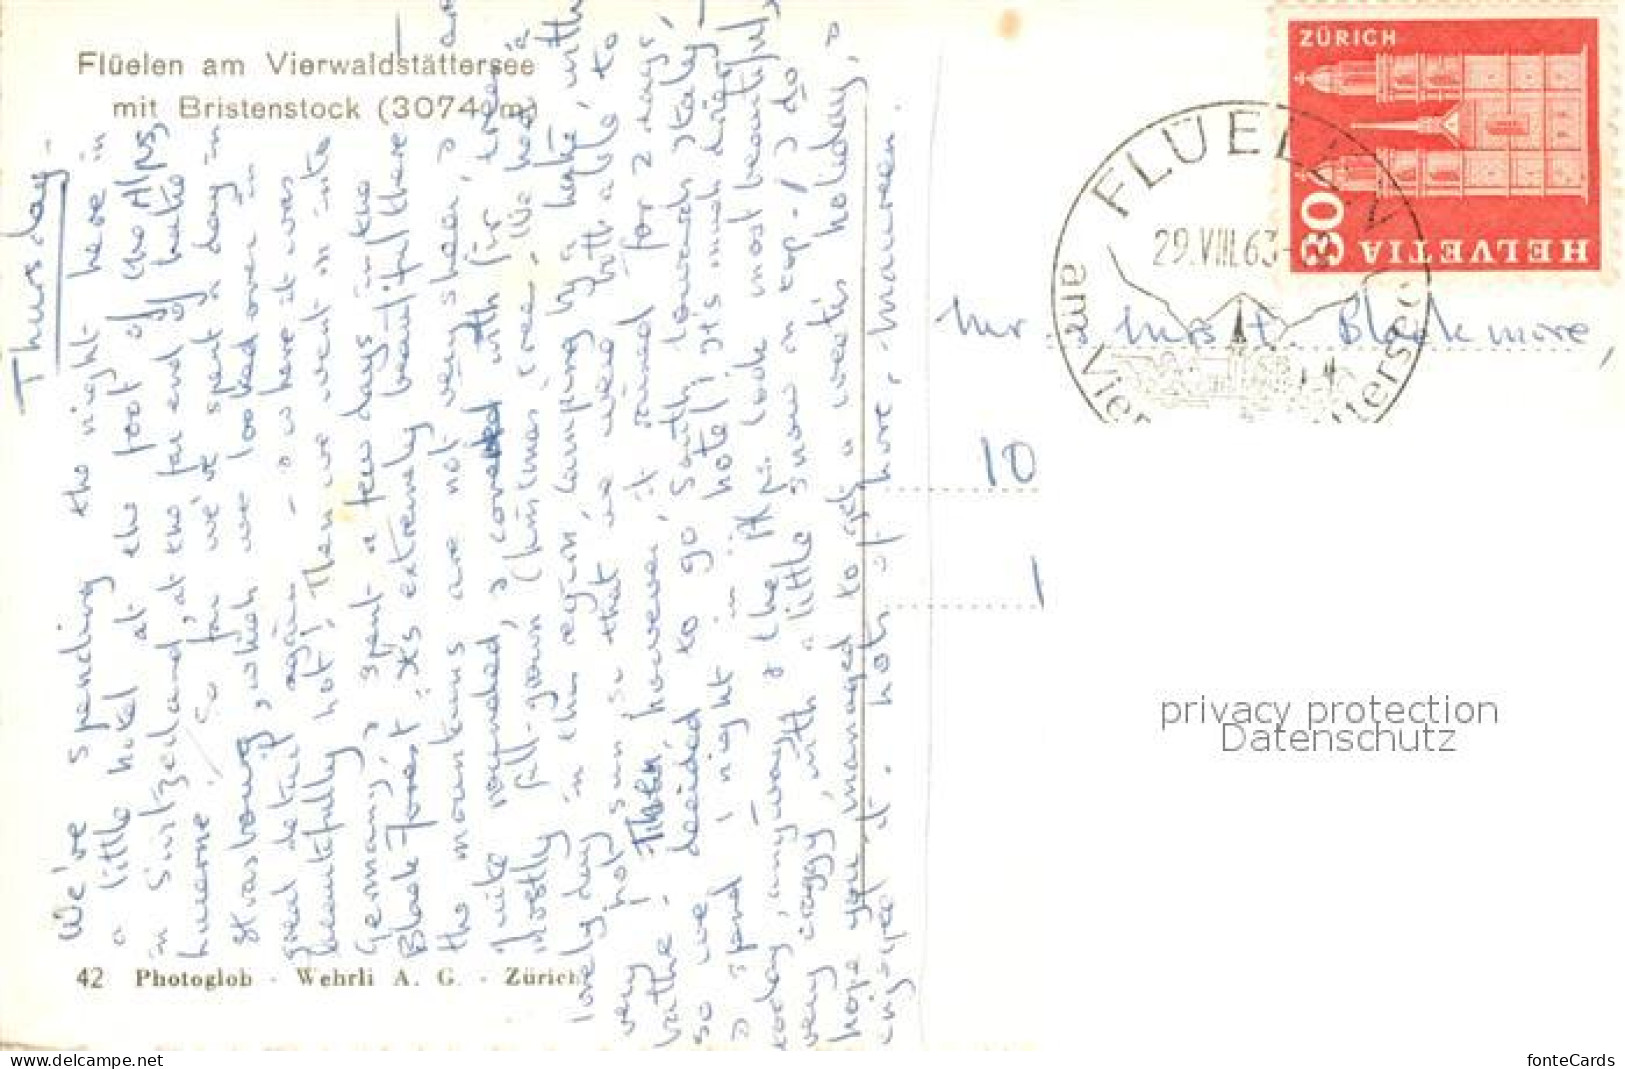 Flüelen am Vierwaldstättersee
mit Bristenstock (3074 m)
Thursday -
We've spending the night here in
a little hotel at the foot of the Alps,
in Switzerland, at the far end of Lake
Lucerne. So far we've spent a day in
Strasbourg, which we looked over in
great detail again - where it was
beautifully hot! Then we went on into
Germany, & spent a few days in the
Black Forest; it's extremely beautiful there
the mountains are not very sheer, &
quite rounded, & covered with fir trees
mostly full-grown (Christmas tree). We had a
lovely day in the region, camping by a lake, with
very hot sun, so that we were both able to
bathe! Then however, it rained for 2 days,
so we decided to go South towards Italy -
& spend 1 night in hotel; it's much drier
today, anyway, & the Alps look most beautiful,
very craggy, with a little snow on top - I do
hope you managed to get a week's holiday, &
enjoyed it. Lots of love, Maureen.
42 Photoglob - Wehrli A. G. - Zürich
ZÜRICH
30
HELVETIA
FLÜELEN
29.VIII.63
am Vier
ttersee
Mr. & Mrs. Blackmore,
10
1
privacy protection
Datenschutz
fonteCards
www.delcampe.net